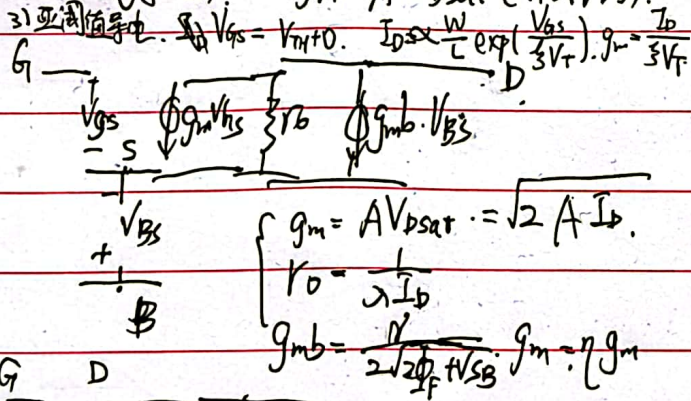 3) 亚阈值导电. V_GS = V_TH+0. I_D ∝ W/L exp(V_GS/ξV_T). g_m = I_D/ξV_T
G D
+ V_gs - S g_m V_gs r_o g_mb·V_BS
- V_BS + B
g_m = AV_Dsat. = √(2 A I_D).
r_o = 1/(λI_D)
g_mb = γ/(2√(2Φ_F+V_SB)) · g_m = η g_m
G D